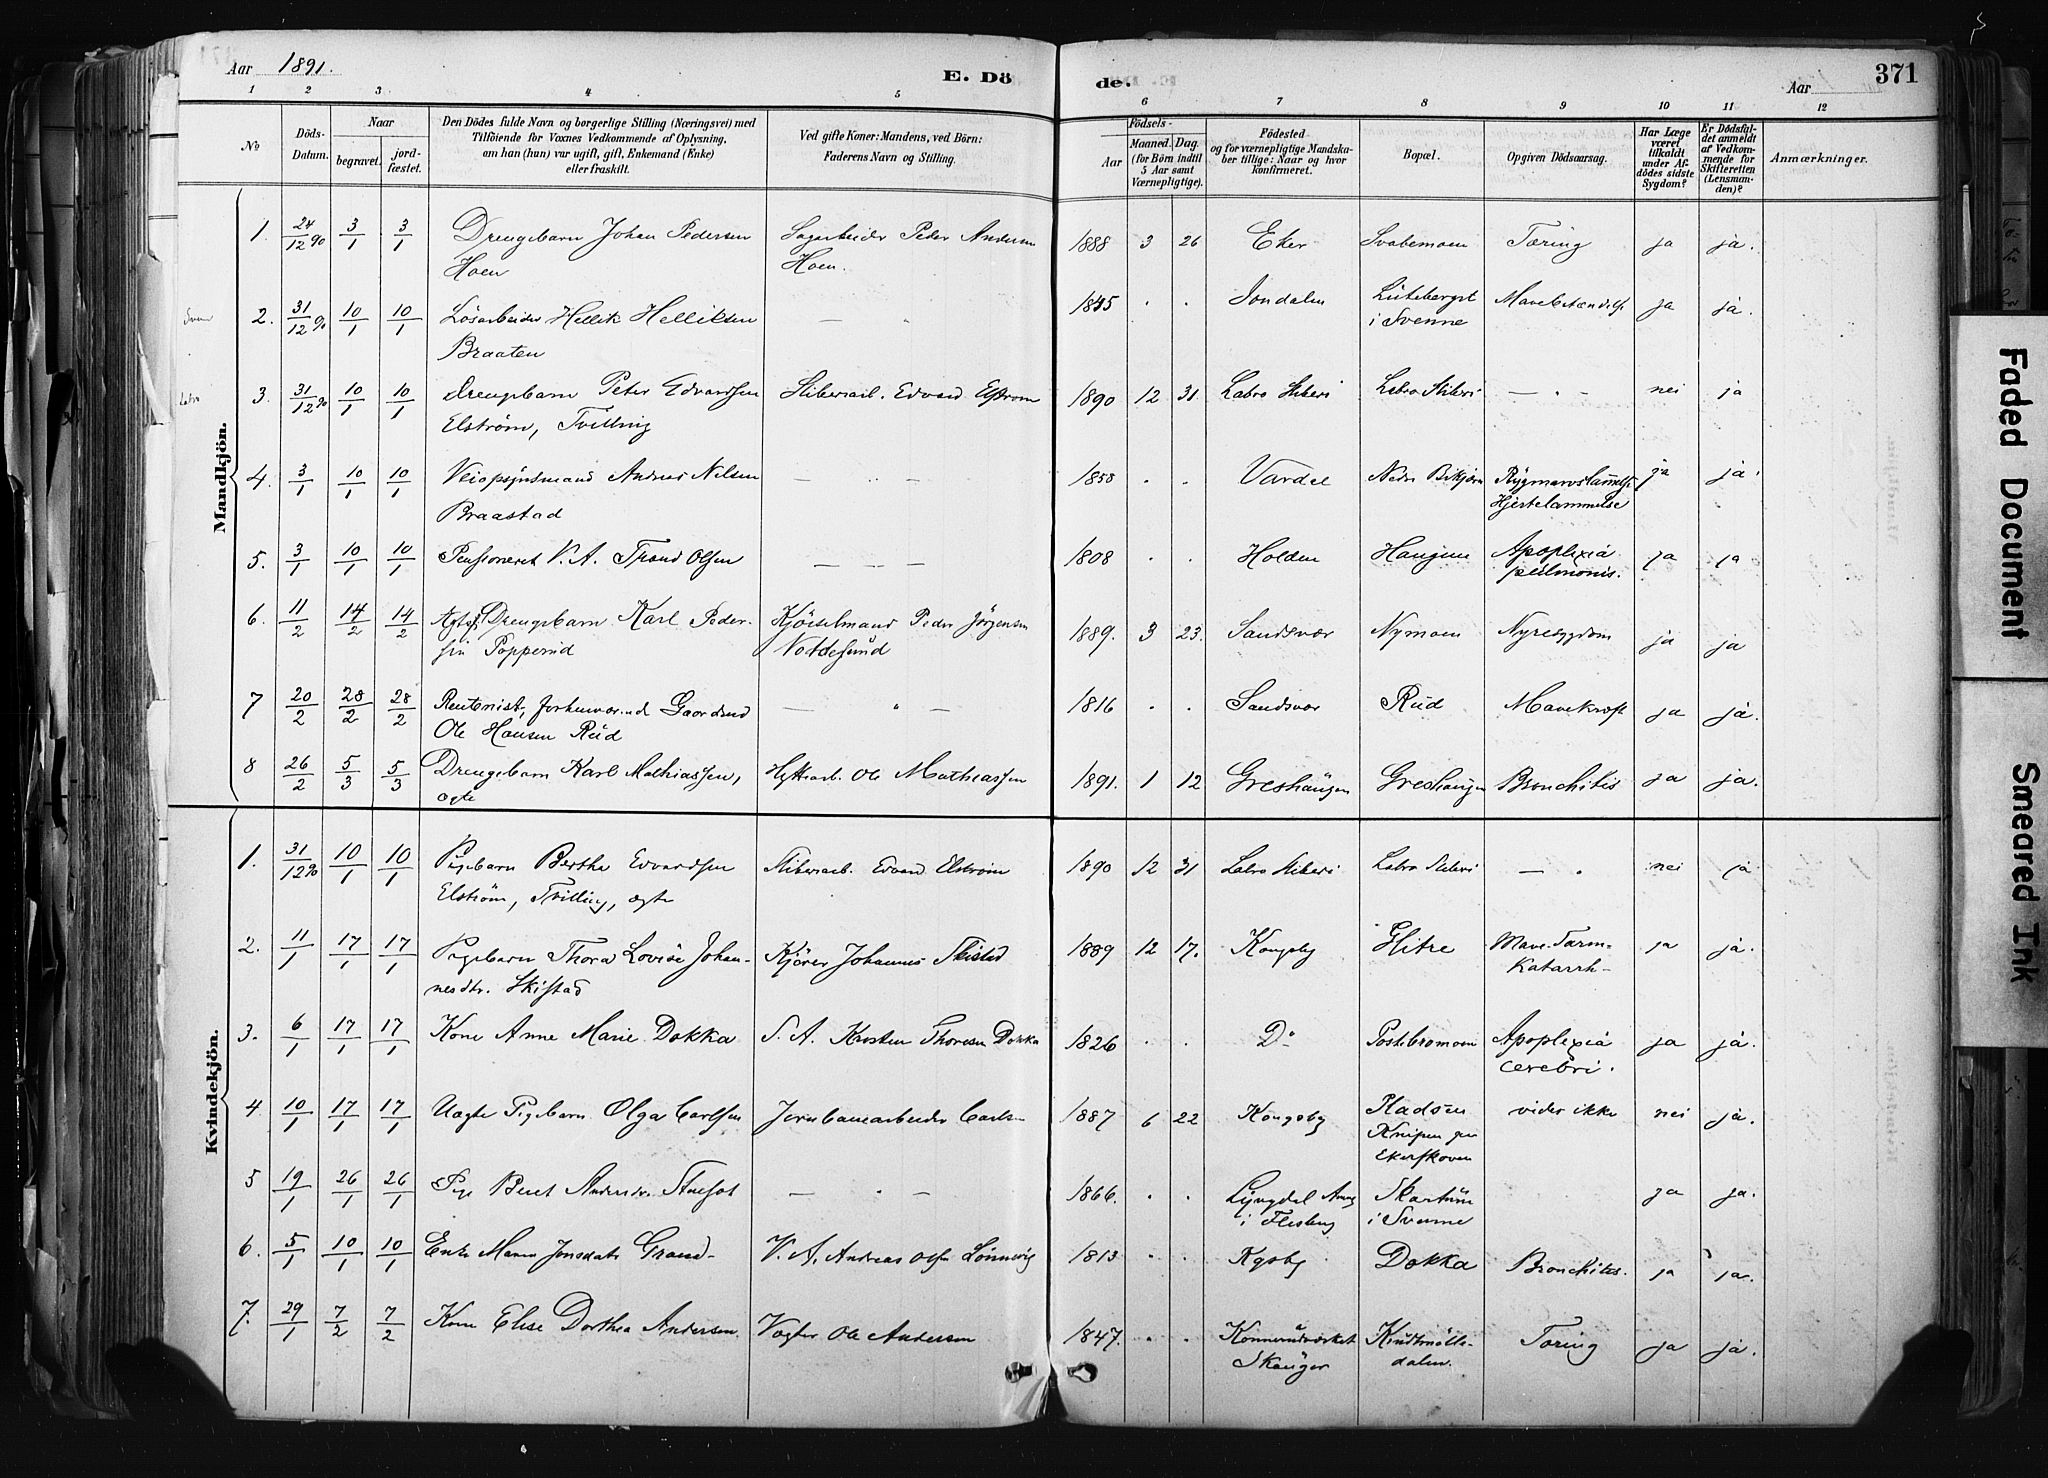 Aar 1891.
E. Dö
de.
Aar
371
1 2 3 4 5 6 7 8 9 10 11 12
No
Döds-Datum.
Naar
begravet.
jord-fæstet.
Den Dödes fulde Navn og borgerlige Stilling (Næringsvei) med
Tilföiende for Voxnes Vedkommende af Oplysning,
om han (hun) var ugift, gift, Enkemand (Enke)
eller fraskilt.
Ved gifte Koner: Mandens, ved Börn:
Faderens Navn og Stilling.
Födsels-
Aar
Maaned. Dag.
(for Börn indtil
5 Aar samt
Værnepligtige).
Födested
og for værnepligtige Mandska-
ber tillige: Naar og hvor
konfirmeret.
Bopæl.
Opgiven Dödsaarsag.
Har Læge
været
tilkaldt
under Af-
dödes sidste
Sygdom?
Er Dödsfal-
det anmeldt
af Vedkom-
mende for
Skifteretten
(Lensman-
den)?
Anmærkninger.
Mandkjön.
1. 24/12 90 3/1 3/1 Drengebarn Johan Pedersen Sagarbeider Peder Andersen 1888 3 26 Eker Svabemoen Tæring ja ja.
Hoen Hoen.
2. 31/12 90 10/1 10/1 Lösarbeider Hellik Helliksen — " 1845 . . Jondalen Lüteberget Mavebetændelse ja ja.
Braaten i Svenne
Labro
3. 31/12 90 10/1 10/1 Drengebarn Peter Edvardsen Sliberiarb. Edvard Elström 1890 12 31 Labro Sliberi Labro Sliberi — " — nei ja
Elström, Tvilling
4. 3/1 10/1 10/1 Veiopsynsmand Andreas Nilsen — " — 1858 . . Vardal Nedre Bikjörn Rygmarvslammelse ja ja.
Braastad Hjertelammelse
5. 3/1 10/1 10/1 Pensioneret V. A. Trond Olsen — — — 1808 . . Holden Haugen Apoplexia ja ja
pulmonis.
6. 11/2 14/2 14/2 Ægtef. Drengebarn Karl Peder- Kjörselmand Peder Jörgensen 1889. 3 23. Sandsvær Nymoen Nyresygdom ja ja
sen Popperud
7 20/2 28/2 28/2 Rentenist, forhenværend Gaardmd — " — 1816 . . Sandsvær Rüd Mavekræft ja ja.
Ole Hansen Rüd
8 26/2 5/3 5/3 Drengebarn Karl Mathiassen, Hyttearb. Ole Mathiassen 1891. 1 12 Greshaugen Greshaugen Bronchitis ja ja.
ægte
Kvindekjön.
1. 31/12 90 10/1 10/1 Pigebarn Berthe Edvardsen Sliberiarb. Edvard Elström 1890 12 31 Labro Sliberi Labro Sliberi — " nei ja
Elström, Tvilling, ægte
2. 11/1 17/1 17/1 Pigebarn Thora Lovise Johan- Kjörer Johannes Skistad 1889 12 17. Kongsby Glitre Mave-Tarm- ja ja.
nesdtr. Skistad Katarrh-
3. 6/1 17/1 17/1 Kone Anne Marie Dokka S. A. Kristen Thoresen Dokka 1826 . . Do Postebromoen Apoplexia ja ja.
cerebri.
4 10/1 17/1 17/1 Uægte Pigebarn Olga Carlsen Jernbanearbeider Carls- 1887 6 22 Kongsby Pladsen vides ikke nei ja.
Knipen paa
Ekerskoven
5 19/1 26/1 26/1 Pige Beret Andersdr. — " — 1866. . . Lyngdal Anneg Skartüm ja ja.
i Flesberg i Svenne
6. 5/1 10/1 10/1 Enke Maren Jonsdatr Grand- V. A. Andreas Olsen Lönnevig 1813 . . Kgsby Dokka Bronchites. ja ja.
7. 29/1 7/2 7/2 Kone Elise Dorthea Andersen. Vogter Ole Andersen 1847. . . Konnerudværket Knutmölle- Tæring ja ja.
Skauger dalen.
Faded Document
Smeared Ink